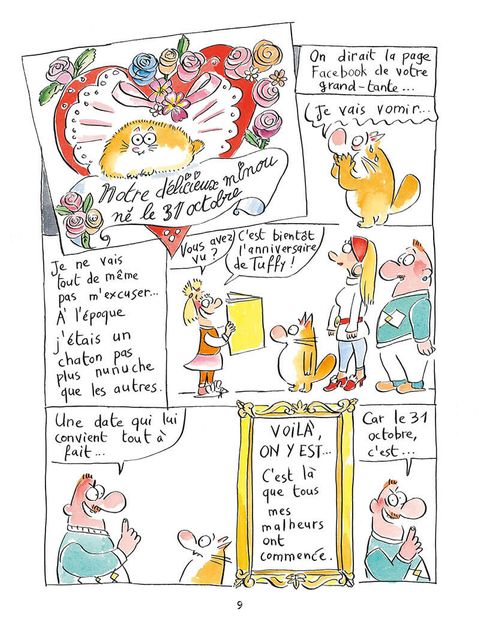 Notre délicieux minou
né le 31 octobre
On dirait la page
Facebook de votre
grand-tante...
Je vais vomir...
Je ne vais
tout de même
pas m'excuser...
A l'époque
j'étais un
chaton pas
plus nunuche
que les autres.
Vous avez
vu ?
C'est bientôt
l'anniversaire
de Tuffy !
Une date qui lui
convient tout à
fait...
VOILÀ,
ON Y EST...
C'est là
que tous
mes
malheurs
ont
commencé.
Car le 31
octobre,
c'est...
9